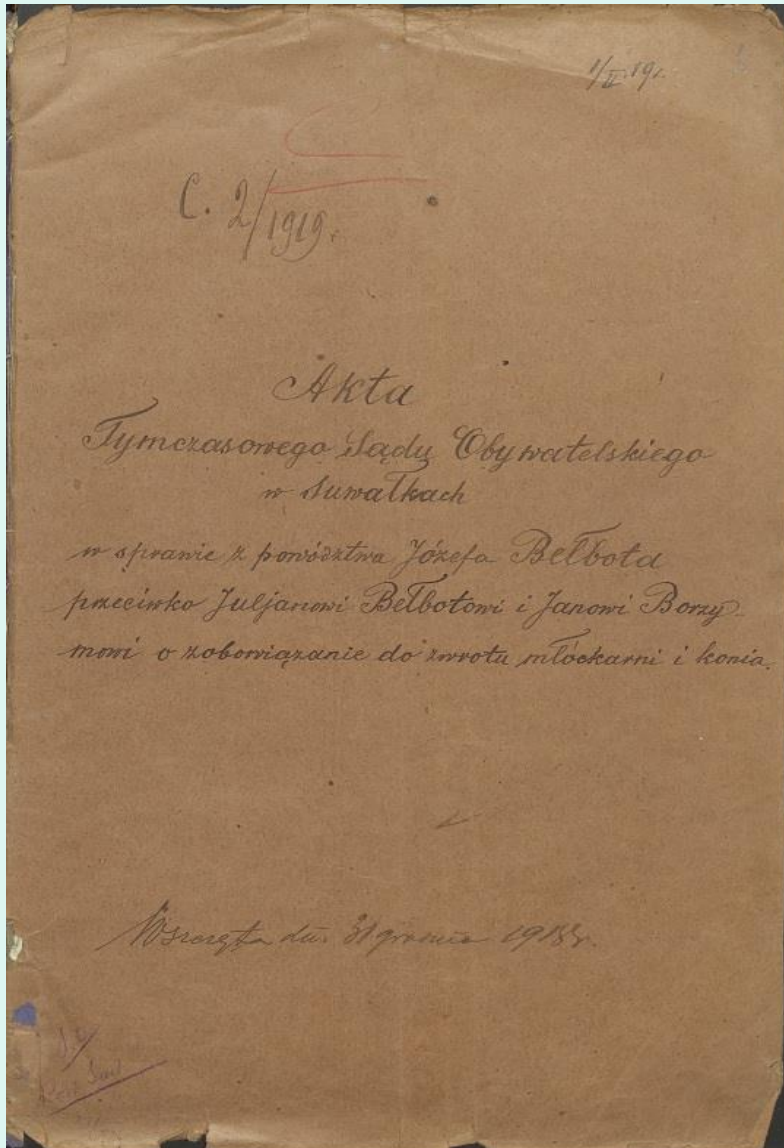 1/II 19r.
C. 2/1919.
Akta
Tymczasowego Sądu Obywatelskiego
w Suwałkach
w sprawie z powództwa Józefa Bełbota
przeciwko Juljanowi Bełbotowi i Janowi Borzy-
mowi o zobowiązanie do zwrotu młóckarni i konia.
Wszczęta dn. 31 grudnia 1918r.